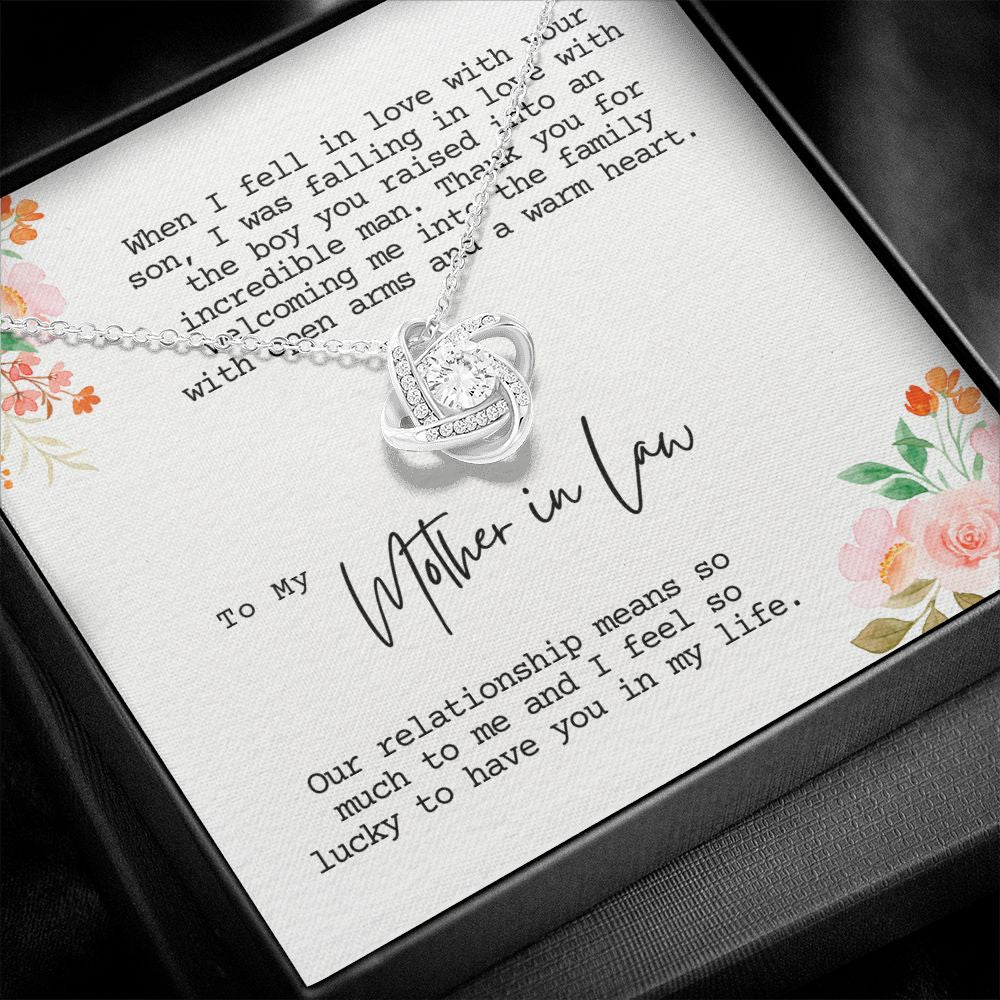 When I fell in love with your
son, I was falling in love with
the boy you raised into an
incredible man. Thank you for
welcoming me into the family
with open arms and a warm heart.
To My Mother in Law
Our relationship means so
much to me and I feel so
lucky to have you in my life.